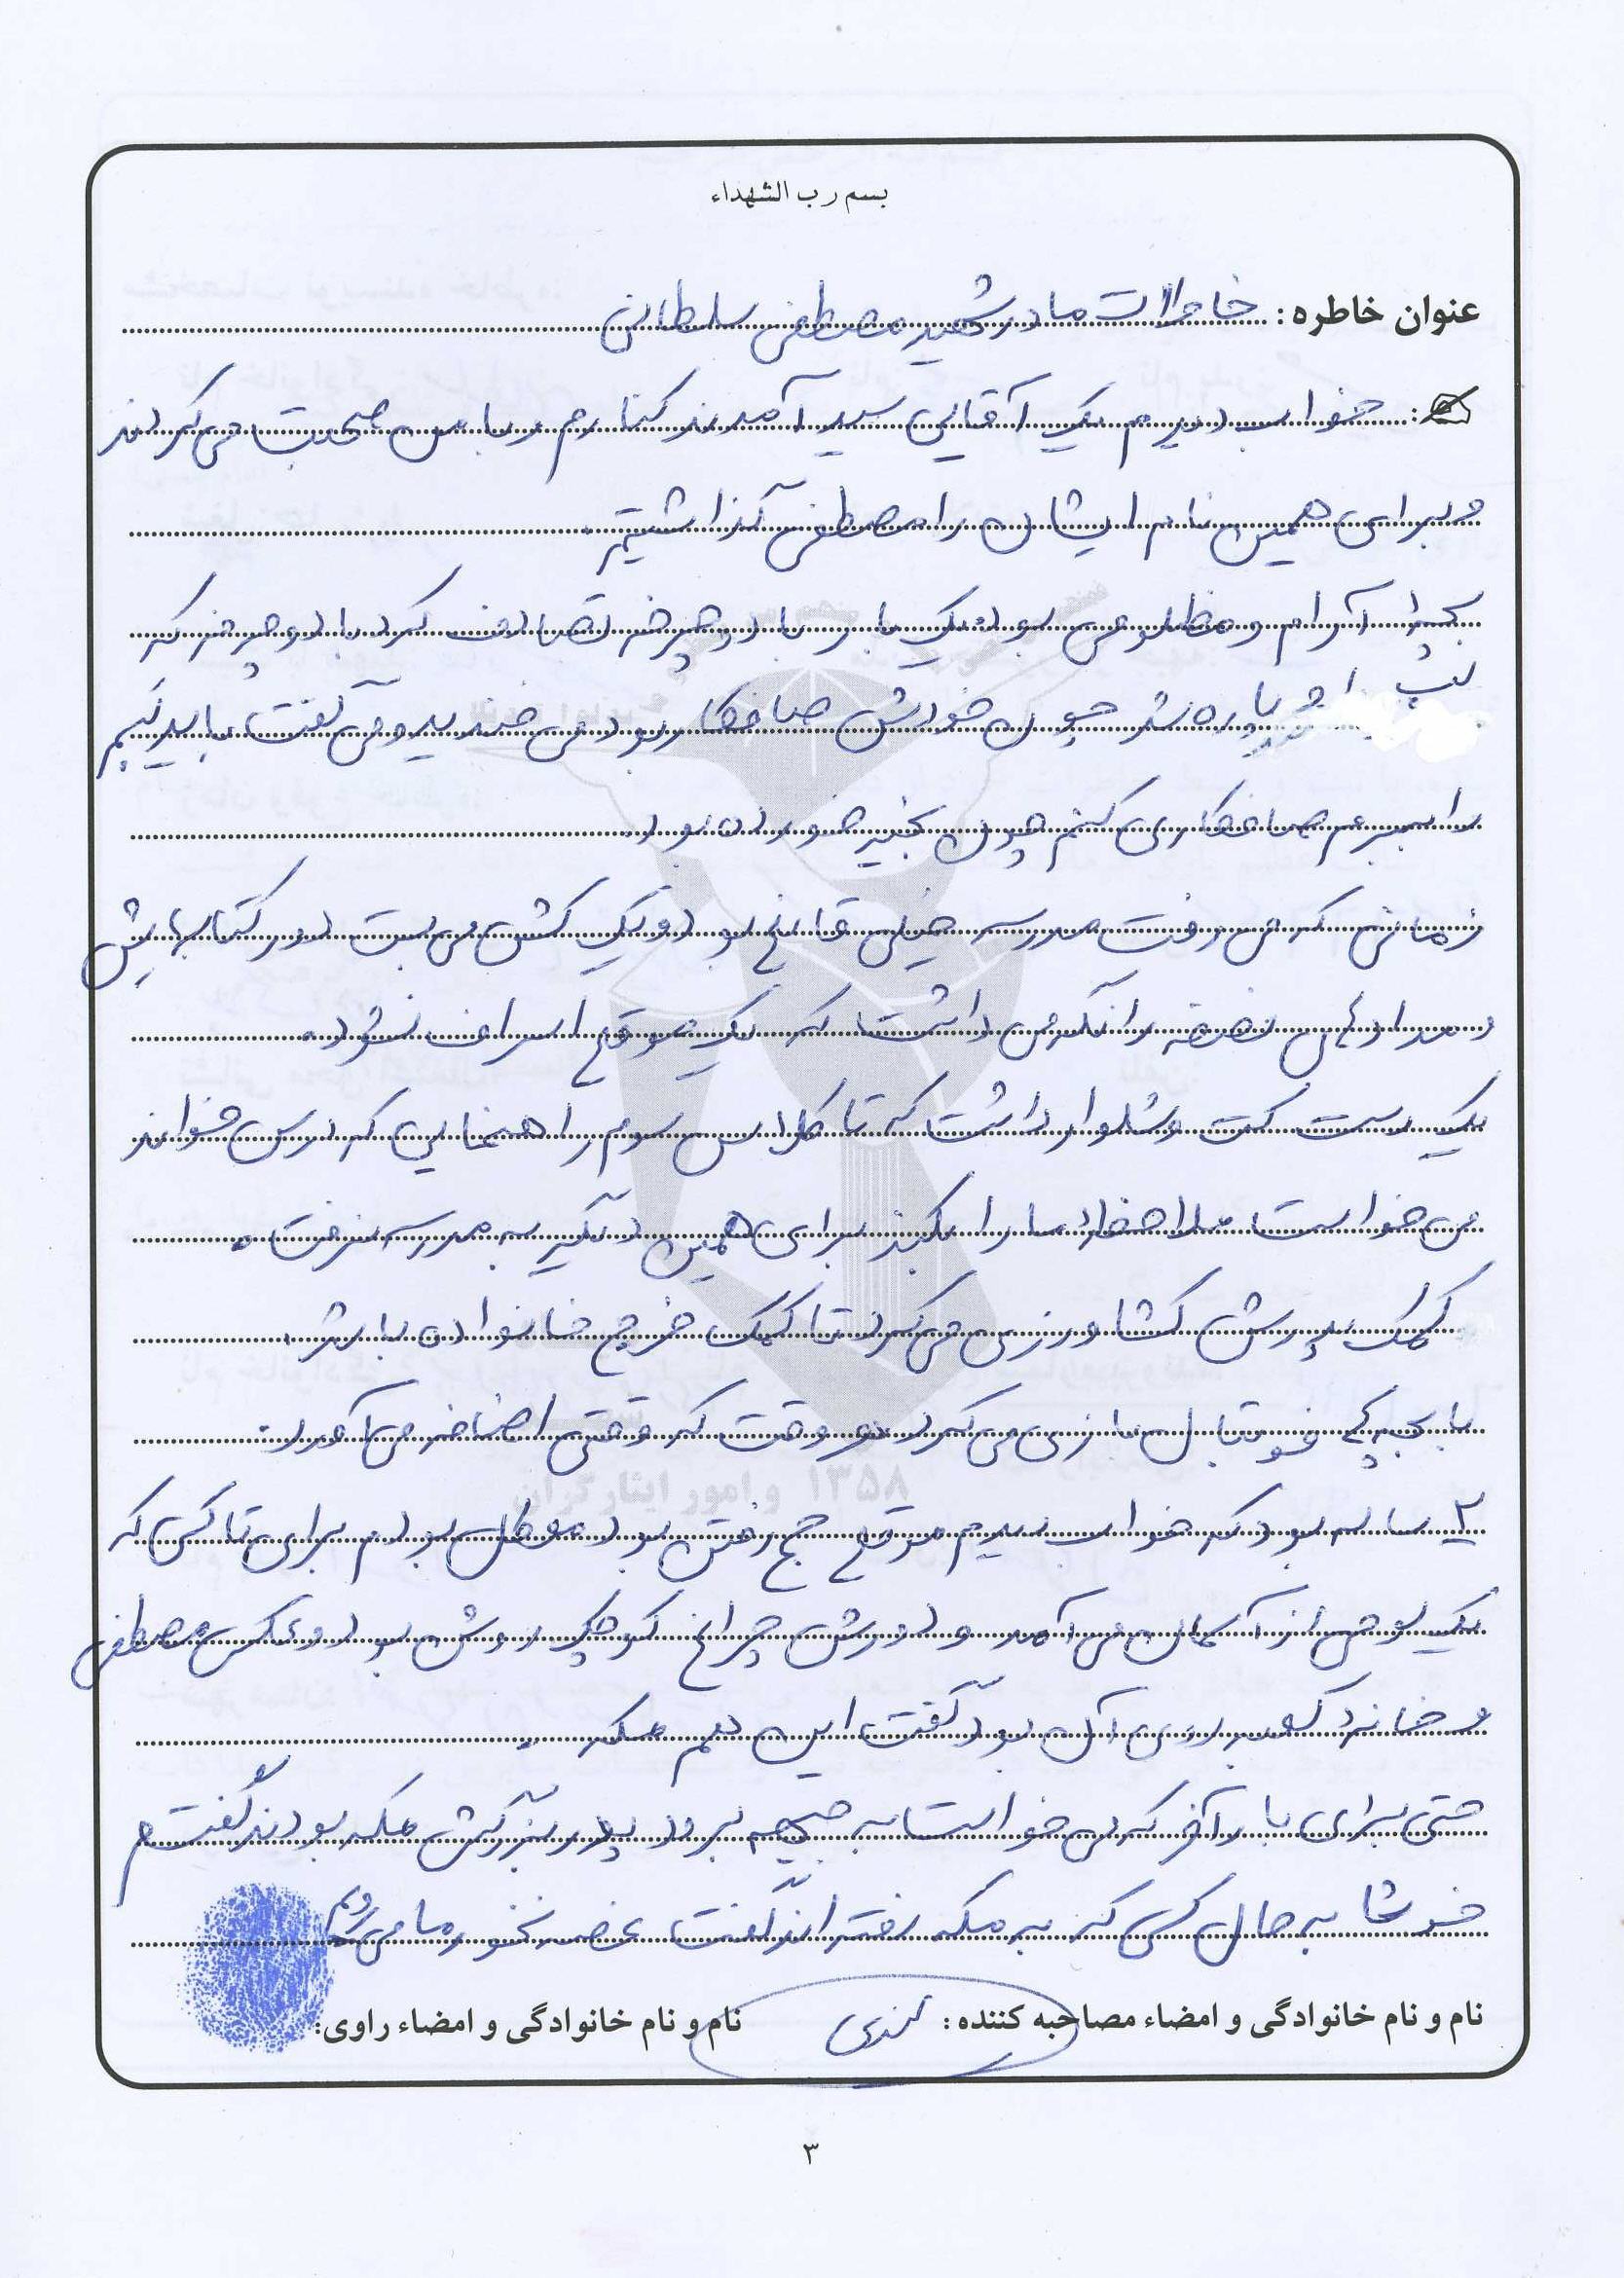 بسم رب الشهداء
عنوان خاطره: خاطرات مادر شهید مصطفی سلطانی
خواب دیدم یک آقایی سید آمدند کنارم و با من صحبت می کردند
و برای همین نام ایشان را مصطفی گذاشتیم.
بچه آرام و مظلومی بود یک بار با دوچرخه تصادف کرد با دوچرخه که
لب پاره شد چون خودش صافکار بود می خندید و می گفت باید لبم
را ببرم صافکاری کنم چون بخیه خورده بود.
زمانی که می رفت مدرسه خیلی قانع بود و یک کش می بست دور کتابهایش
و مدادهای نصفه را نگه می داشت که یک موقع اسراف نشود.
یک دست کت و شلوار داشت که تا کلاس سوم راهنمایی که درس خواند
می خواست ملاحظه ما را بکند برای همین دیگر به مدرسه نرفت.
کمک پدرش کشاورزی می کرد تا کمک خرج خانواده باشد.
با بچه ها فوتبال بازی می کرد هر وقت که وقتی اضافه می آورد.
۲ ساله بود که خواب دیدم موقع حج رفتن بود معطل بودم برای تاکسی که
یک لوحی از آسمان می آمد و دورش چراغ کوچک روشن بود و عکس مصطفی
و خانه کعبه روی آن بود گفت این هم مکه.
حتی برای بار آخر که می خواست به جبهه برود پدر بزرگش مکه بودند گفتم
خوشا به حال کسی که به مکه رفته اند گفت غصه نخور ما می رویم
نام و نام خانوادگی و امضاء مصاحبه کننده:
نام و نام خانوادگی و امضاء راوی:
۱۳۵۸ و امور ایثارگران
۳